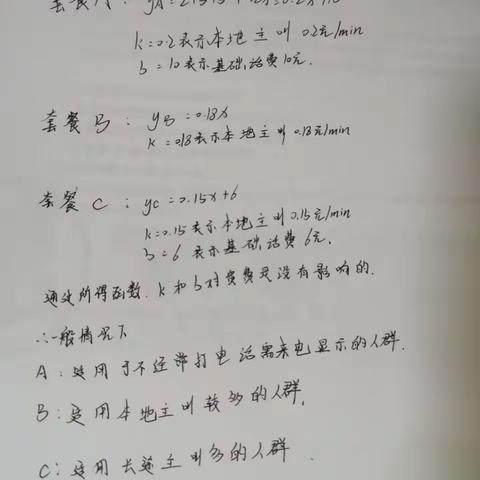 套餐A：
k=0.2表示本地主叫 0.2元/min
b=10表示基础话费10元.
套餐 B： yB=0.18x
k=0.18表示本地主叫 0.18元/min
套餐 C： yc=0.15x+6
k=0.15表示本地主叫0.15元/min
b=6 表示基础话费 6元.
通过所得函数. k 和 b对资费是没有影响的.
∴一般情况下
A：适用于不经常打电话需来电显示的人群.
B：适用本地主叫较多的人群.
C：适用长途主叫多的人群.